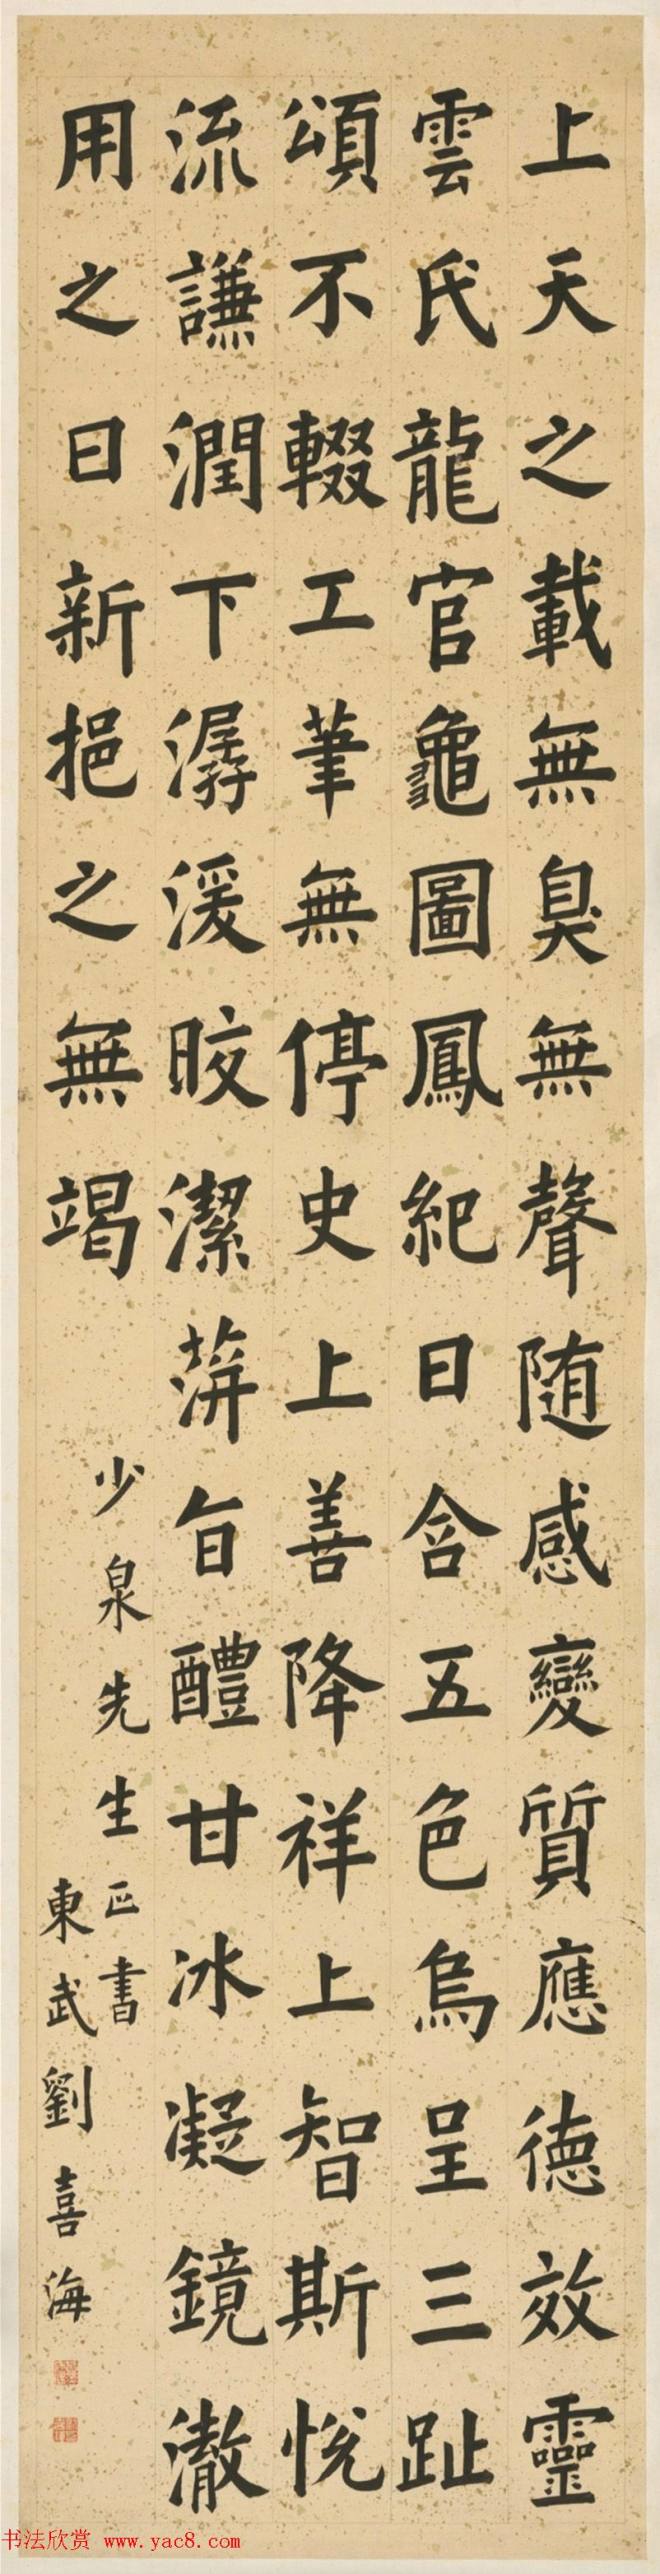 上天之載無臭無聲随感變質應德效靈
雲氏龍官龜圖鳳紀日含五色烏呈三趾
頌不輟工筆無停史上善降祥上智斯悅
流謙潤下潺湲皎潔蓱旨醴甘冰凝鏡澈
用之日新挹之無竭
少泉先生正書
東武劉喜海
书法欣赏 www.yac8.com